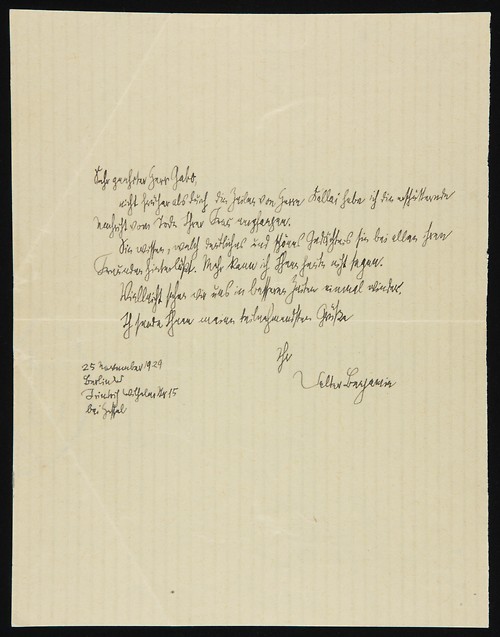 Sehr geehrter Herr Gabo,
nicht früher als durch die Zeilen von Herrn Kallai habe ich die erschütternde
Nachricht vom Tode Ihrer Frau empfangen.
Sie wissen, welch deutliches und schönes Gedächtnis sie bei allen ihren
Freunden hinterlässt. Mehr kann ich Ihnen heute nicht sagen.
Vielleicht sehen wir uns in besseren Zeiten einmal wieder.
Ich sende Ihnen meine teilnehmendsten Grüße
Ihr
Walter Benjamin
25 November 1929
Berlin W
Friedrich Wilhelm Str 15
bei Hessel